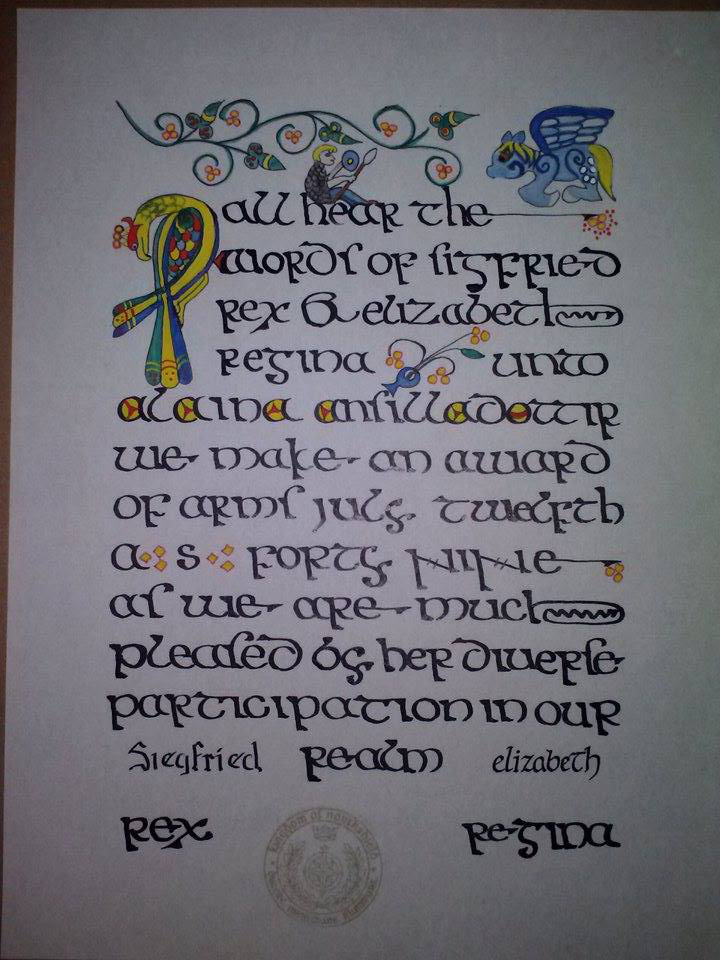 all hear the
words of sigfried
rex & elizabeth
regina unto
alaina ansilladottir
we make an award
of arms july twelfth
a s forty nine
as we are much
pleased by her diverse
participation in our
Siegfried realm elizabeth
rex regina
kingdom of northshield